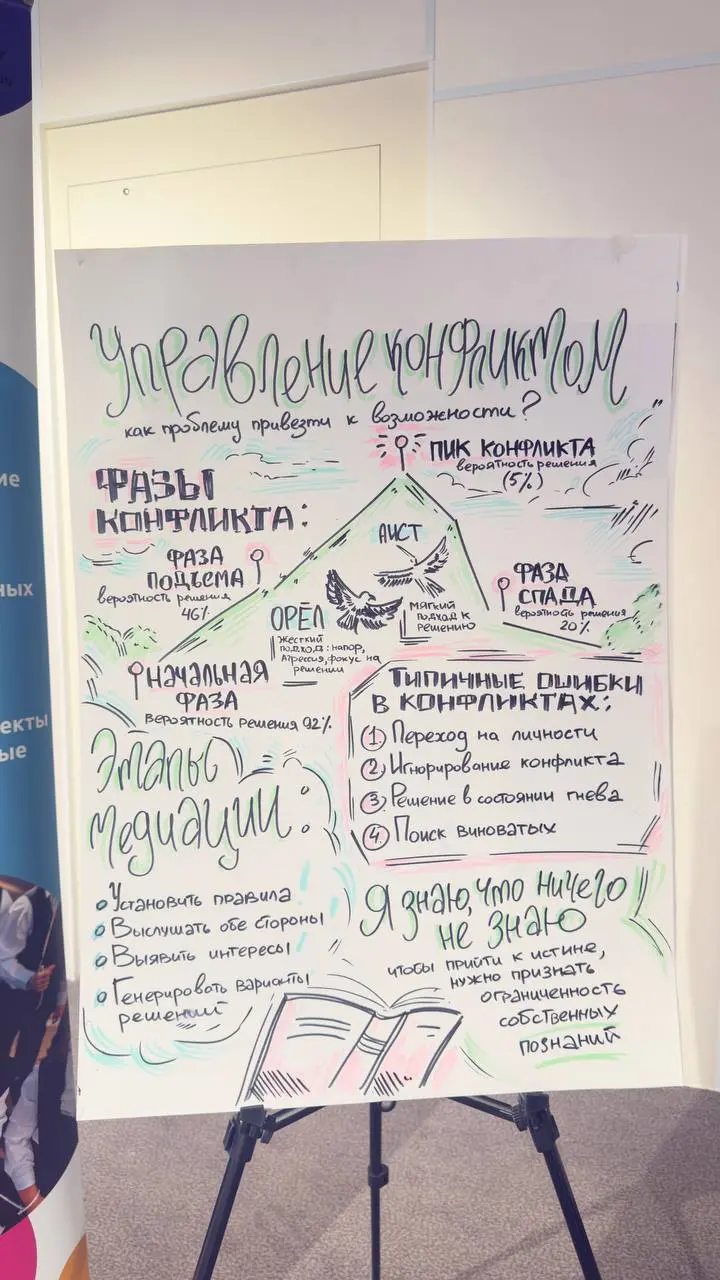 Управление конфликтом
как проблему привезти к возможности?
ПИК КОНФЛИКТА
вероятность решения
(5%)
ФАЗЫ
КОНФЛИКТА:
АИСТ
ФАЗА
ПОДЪЕМА
вероятность решения
46%
ФАЗА
СПАДА
вероятность решения
20%
ОРЁЛ
Жесткий
подход: напор,
Агрессия, фокус на
решении
Мягкий
подход к
решению
НАЧАЛЬНАЯ
ФАЗА
вероятность решения 92%
ТИПИЧНЫЕ ОШИБКИ
В КОНФЛИКТАХ:
1. Переход на личности
2. Игнорирование конфликта
3. Решение в состоянии гнева
4. Поиск виноватых
Этапы
медиации:
Установить правила
Выслушать обе стороны
Выявить интересы
Генерировать варианты
решений
Я знаю, что ничего
не знаю
чтобы прийти к истине,
нужно признать
ограниченность
собственных
познаний